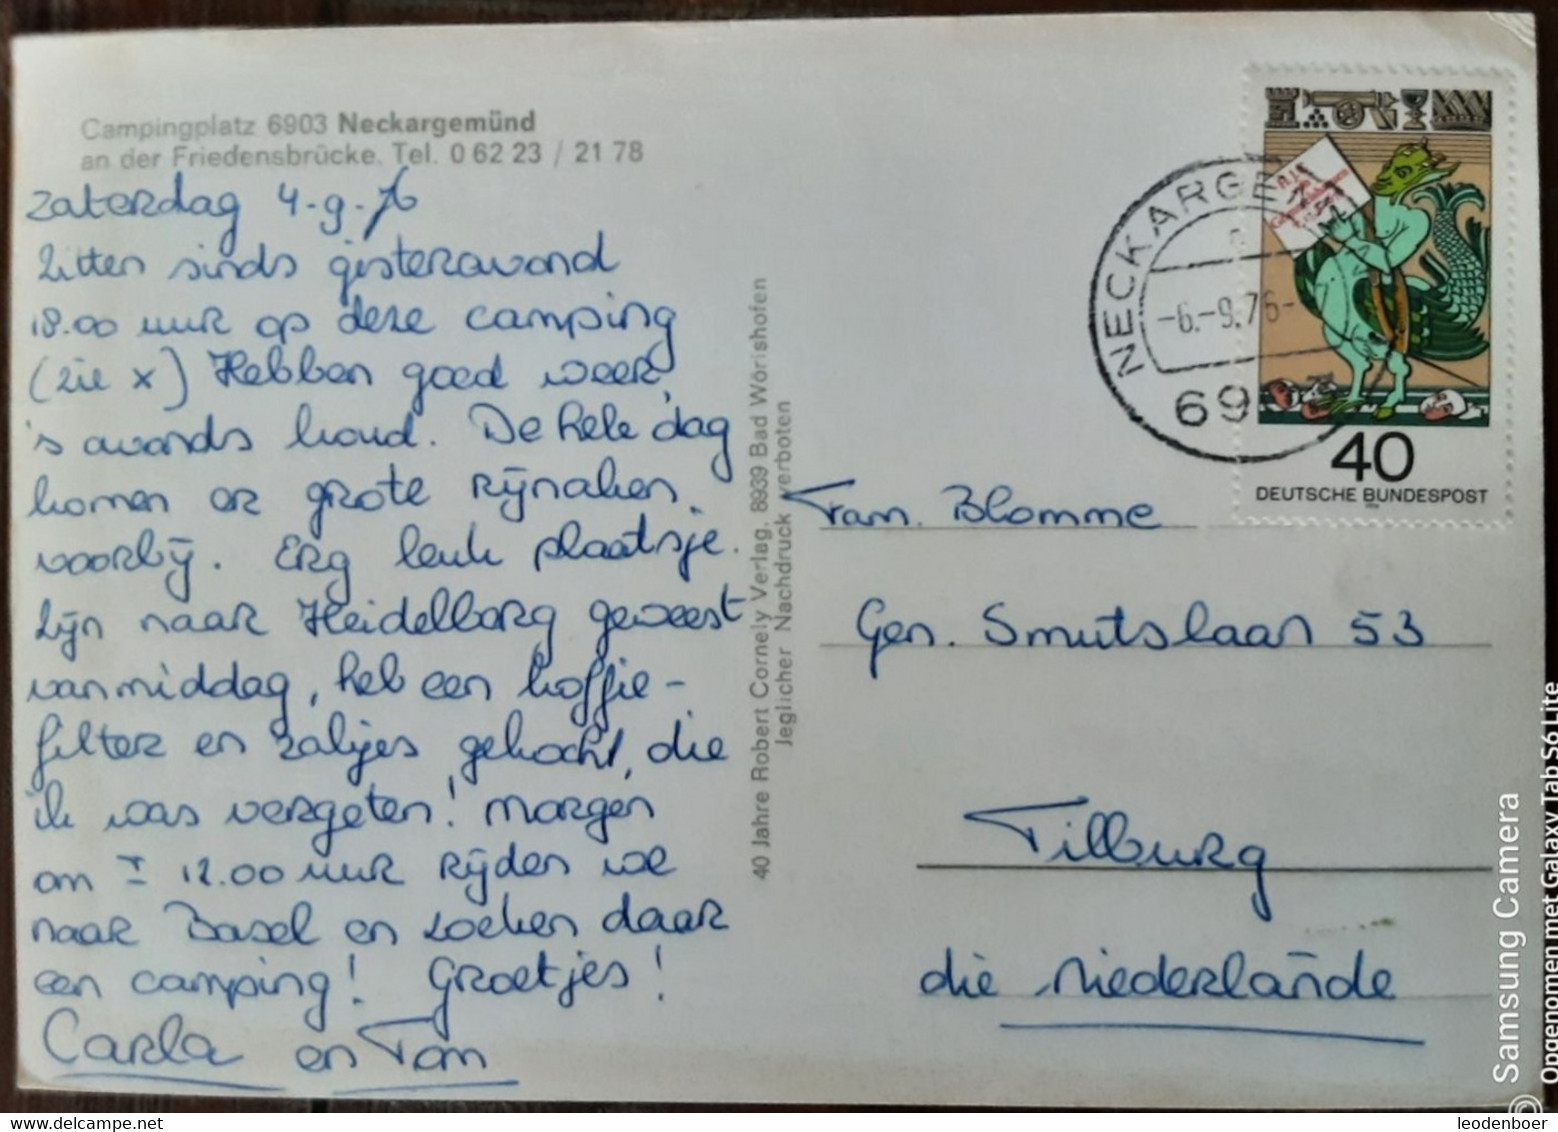 Campingplatz 6903 Neckargemünd
an der Friedensbrücke. Tel. 0 62 23 / 21 78
Zaterdag 4-9-76
Zitten sinds gisteravond
18.00 uur op deze camping
(zie x) Hebben goed weer,
's avonds koud. De hele dag
komen er grote rijnaken
voorbij. Erg leuk plaatsje.
Zijn naar Heidelberg geweest
vanmiddag, heb een koffie-
filter en zakjes gekocht, die
ik was vergeten! Morgen
om ± 12.00 uur rijden we
naar Basel en zoeken daar
een camping! Groetjes!
Carla en Ton
40 Jahre Robert Cornely Verlag, 8939 Bad Wörishofen
Jeglicher Nachdruck verboten
NECKARGEM
-6.-9.76-
69
40
DEUTSCHE BUNDESPOST
Fam. Blomme
Gen. Smutslaan 53
Tilburg
die Niederlände
Samsung Camera
Opgenomen met Galaxy Tab S6 Lite
leodenboer